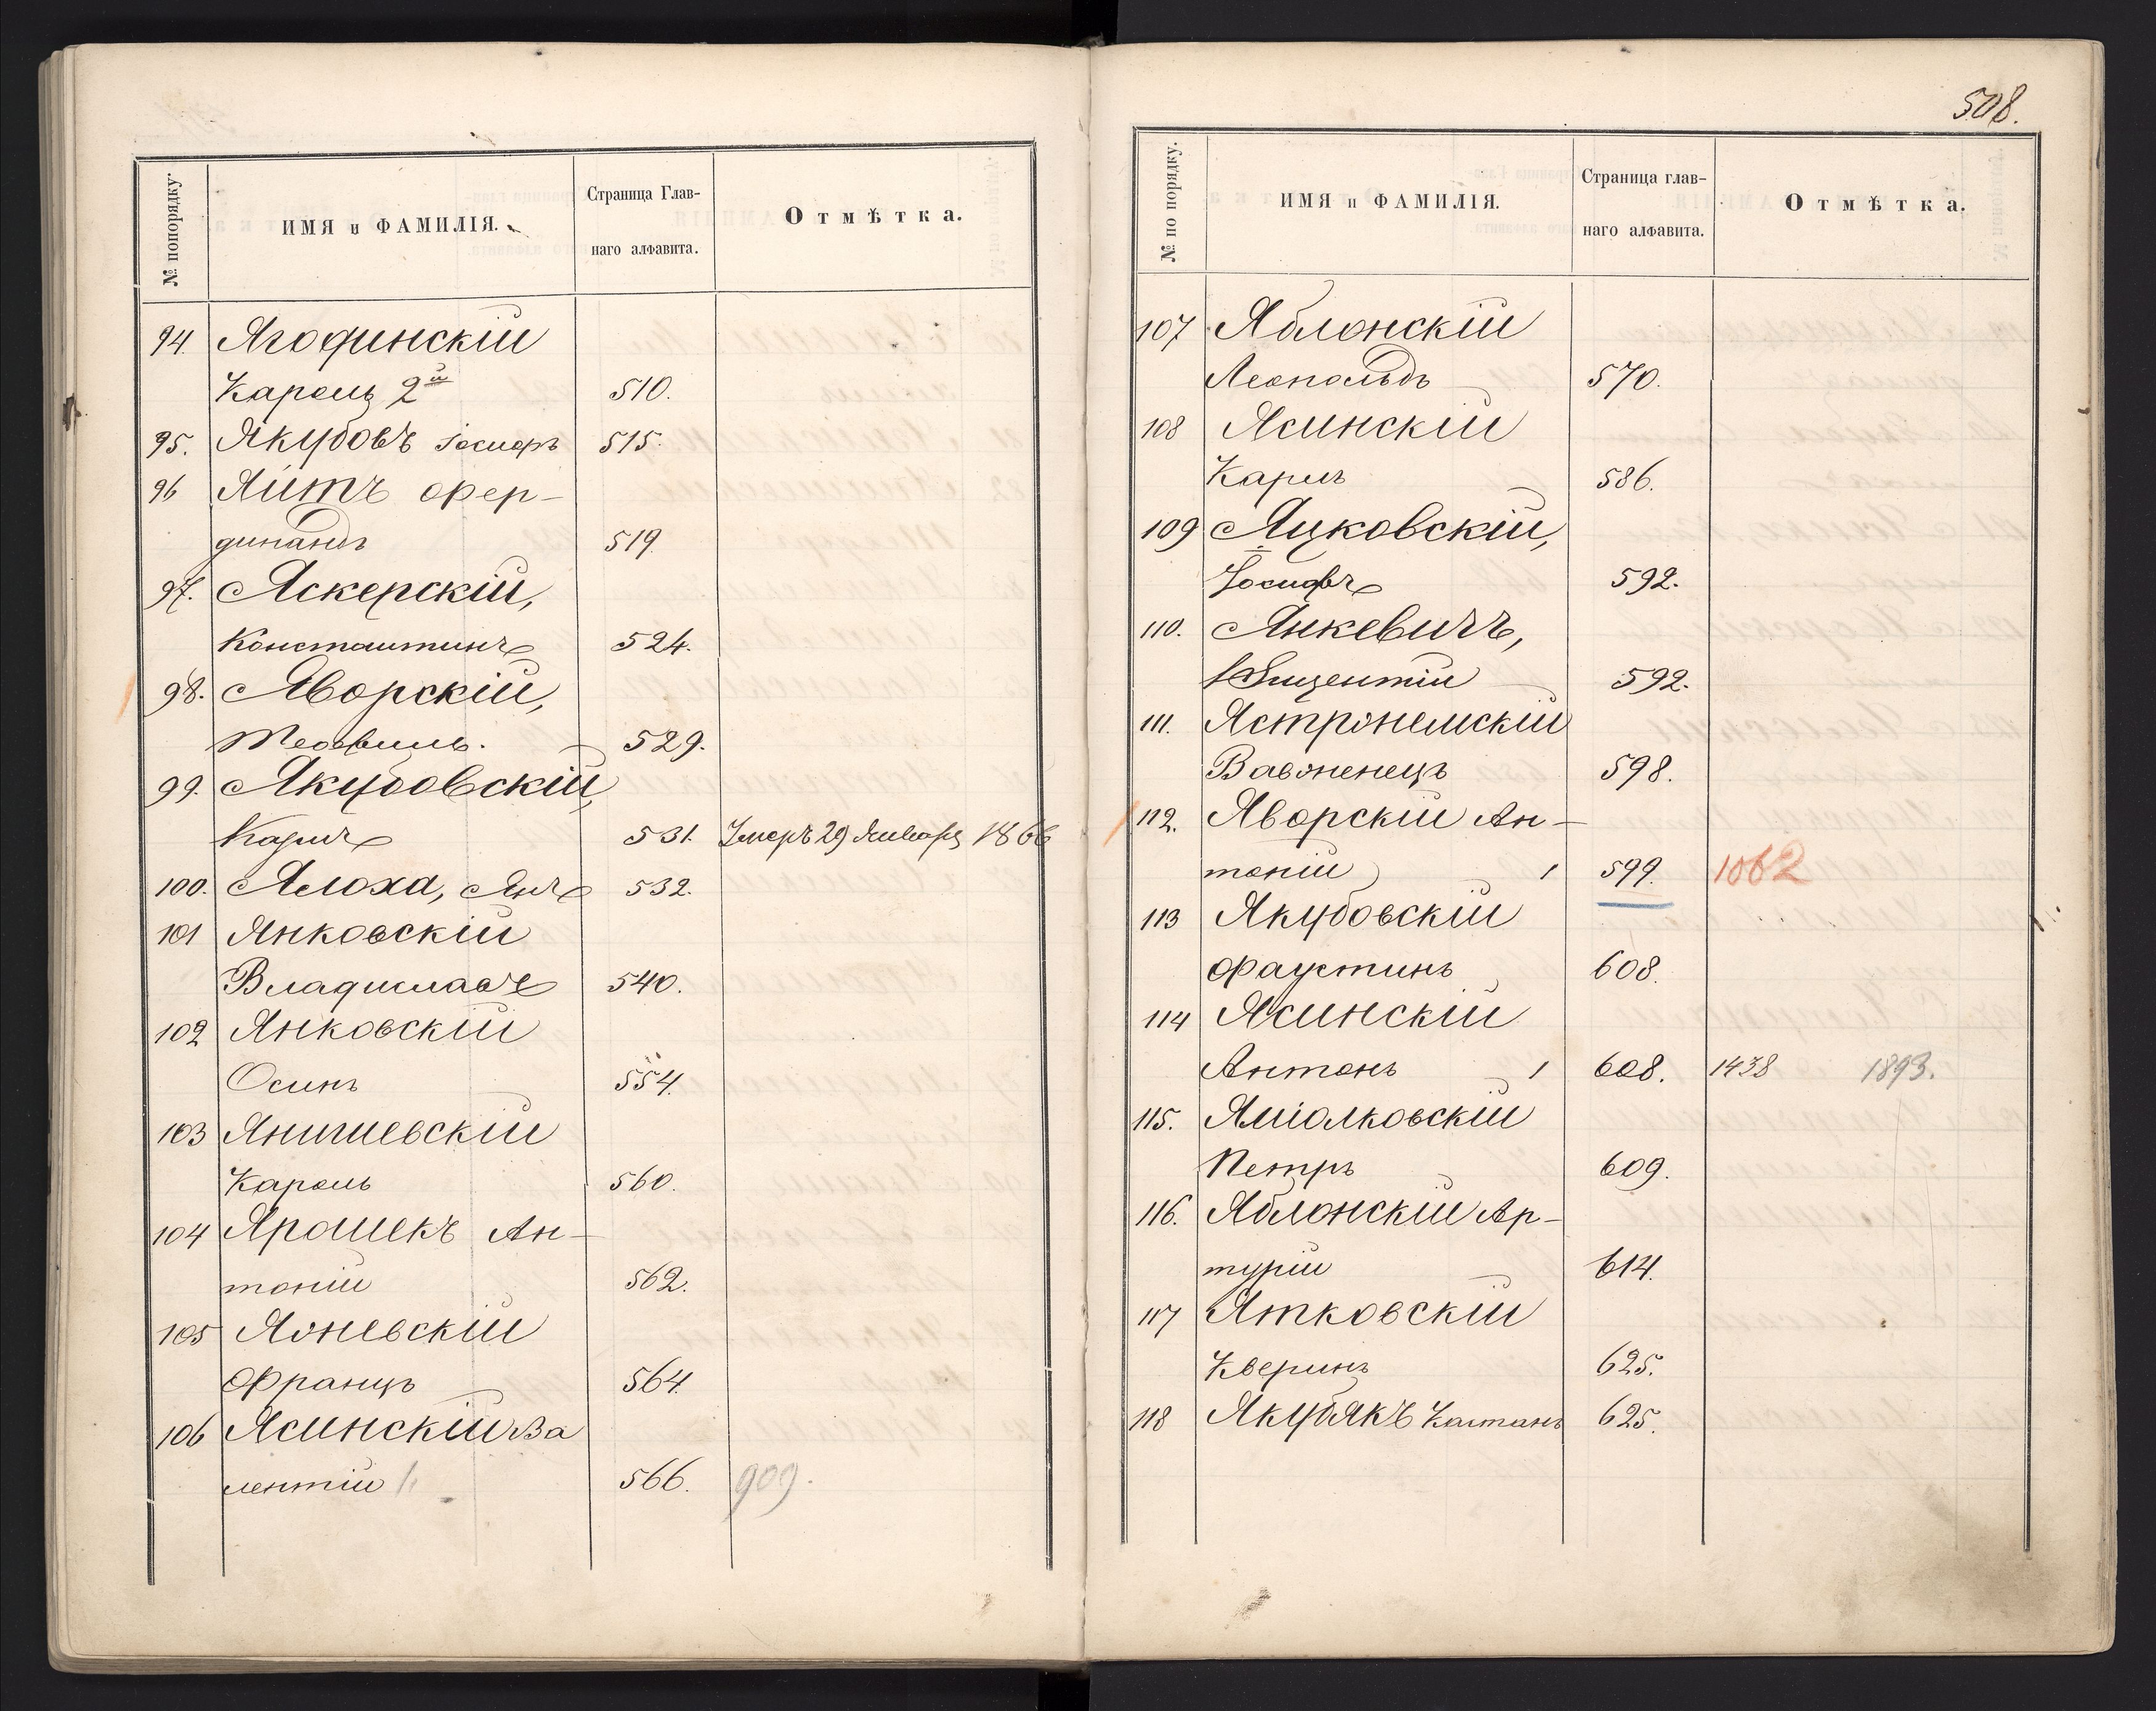 № попорядку.
ИМЯ и ФАМИЛІЯ.
Страница Глав-
наго алфавита.
Отмѣтка.
94. Ягодинскій
Кароль 2й 510.
95. Якубовъ Іосифъ 515.
96 Яитъ Фер-
динандъ 519.
97. Яскерскій,
Константинъ 524.
98. Яворскій,
Теофиль. 529.
99. Якубовскій,
Карлъ 531. Умеръ 29 Января 1866
100. Ялоха, Янъ 532.
101 Янковскій
Владиславъ 540.
102 Янковскій
Осипъ 554.
103 Янишевскій
Кароль 560.
104 Ярошекъ Ан-
тоній 562.
105 Яоневскій
Францъ 564.
106 Ясинскій Ва
лентій 566. 909.
508.
№ по порядку.
ИМЯ и ФАМИЛІЯ.
Страница глав-
наго алфавита.
Отмѣтка.
107 Яблонскій
Леопольдъ 570.
108 Ясинскій
Карлъ 586.
109 Яцковскій,
Іосифъ 592.
110. Янкевичъ,
Вицентій 592.
111. Ястржемскій
Вавженецъ 598.
112. Яворскій Ан-
тоній 1 599. 1062
113 Якубовскій
Фаустинъ 608.
114 Ясинскій
Антонъ 1 608. 1438 1893.
115. Яміолковскій
Петръ 609.
116. Яблонскій Ар-
турій 614.
117 Ятковскій
Кверинъ 625.
118 Якубякъ Каетанъ 625.